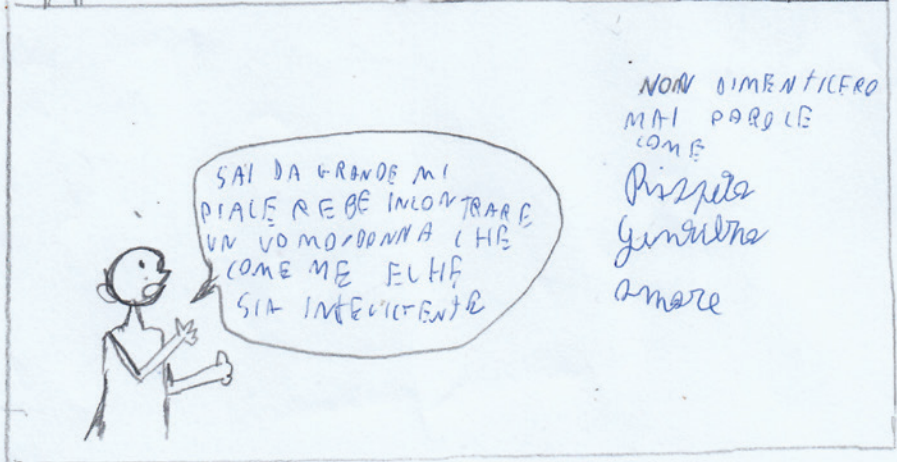 SAI DA GRANDE MI
PIACEREBE INCONTRARE
UN UOMO/DONNA CHE
COME ME E CHE
SIA INTELLIGENTE
NON DIMENTICERO
MAI PAROLE
COME
Rispetto
Gentilezza
amore